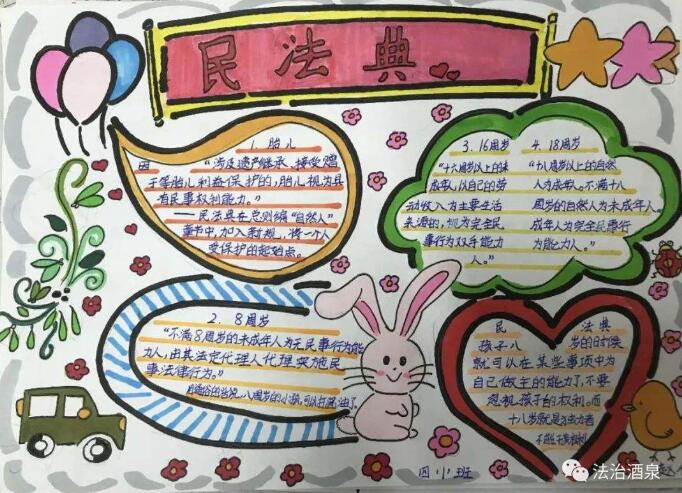 民法典
1. 胎儿
因 “涉及遗产继承、接受赠
于等胎儿利益保护的,胎儿视为具
有民事权利能力。”
——民法典在总则编“自然人”
章节中,加入新规,将一个人
受保护的起始点。
2. 8周岁
“不满8周岁的未成年人为无民事行为能
力人,由其法定代理人代理实施民
事法律行为。”
八周岁的小孩,可以打酱油了。
3. 16周岁
“十六周岁以上的未
成年人,以自己的劳
动收入为主要生活
来源的,视为完全民
事行为能力
人。”
4. 18周岁
“十八周岁以上的自然
人为成年人。不满十八
周岁的自然人为未成年人。
成年人为完全民事行
为能力人。”
民 法典
孩子八 岁的时候
就可以在某些事项中为
自己做主的能力了,不要
忽视孩子的权利。而
十八岁就是
四小班
法治酒泉